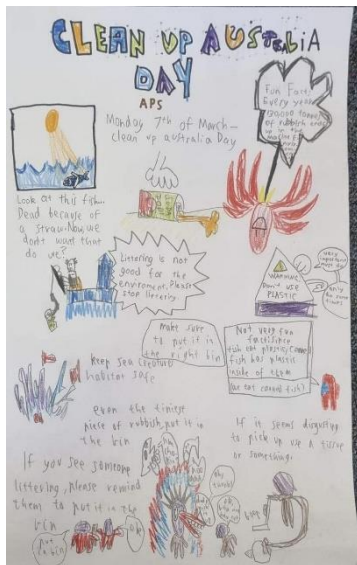 CLEAN UP AUSTRALIA
DAY
APS
Monday 7th of March-
clean up australia Day
Fun Fact:
Every year
130000 tonnes
of rubbish ends
up in the
Look at this fish.
Dead because of
a straw. Now we
don't want that
do we?
Littering is not
good for the
enviroment. Please
stop littering.
WARNING
Don't USE
PLASTIC
very
important
Make sure
to put it in
the right bin
Not very fun
fact: since
fish eat plastic, canned
fish has plastic
inside of them
(we eat canned fish)
Keep sea creature
habitat safe
even the tiniest
piece of rubbish, put it in
the bin
If it seems disgusting
to pick up use a tissue
or something.
If you see someone
littering, please remind
them to put it in the
bin
Put
in bin
ok